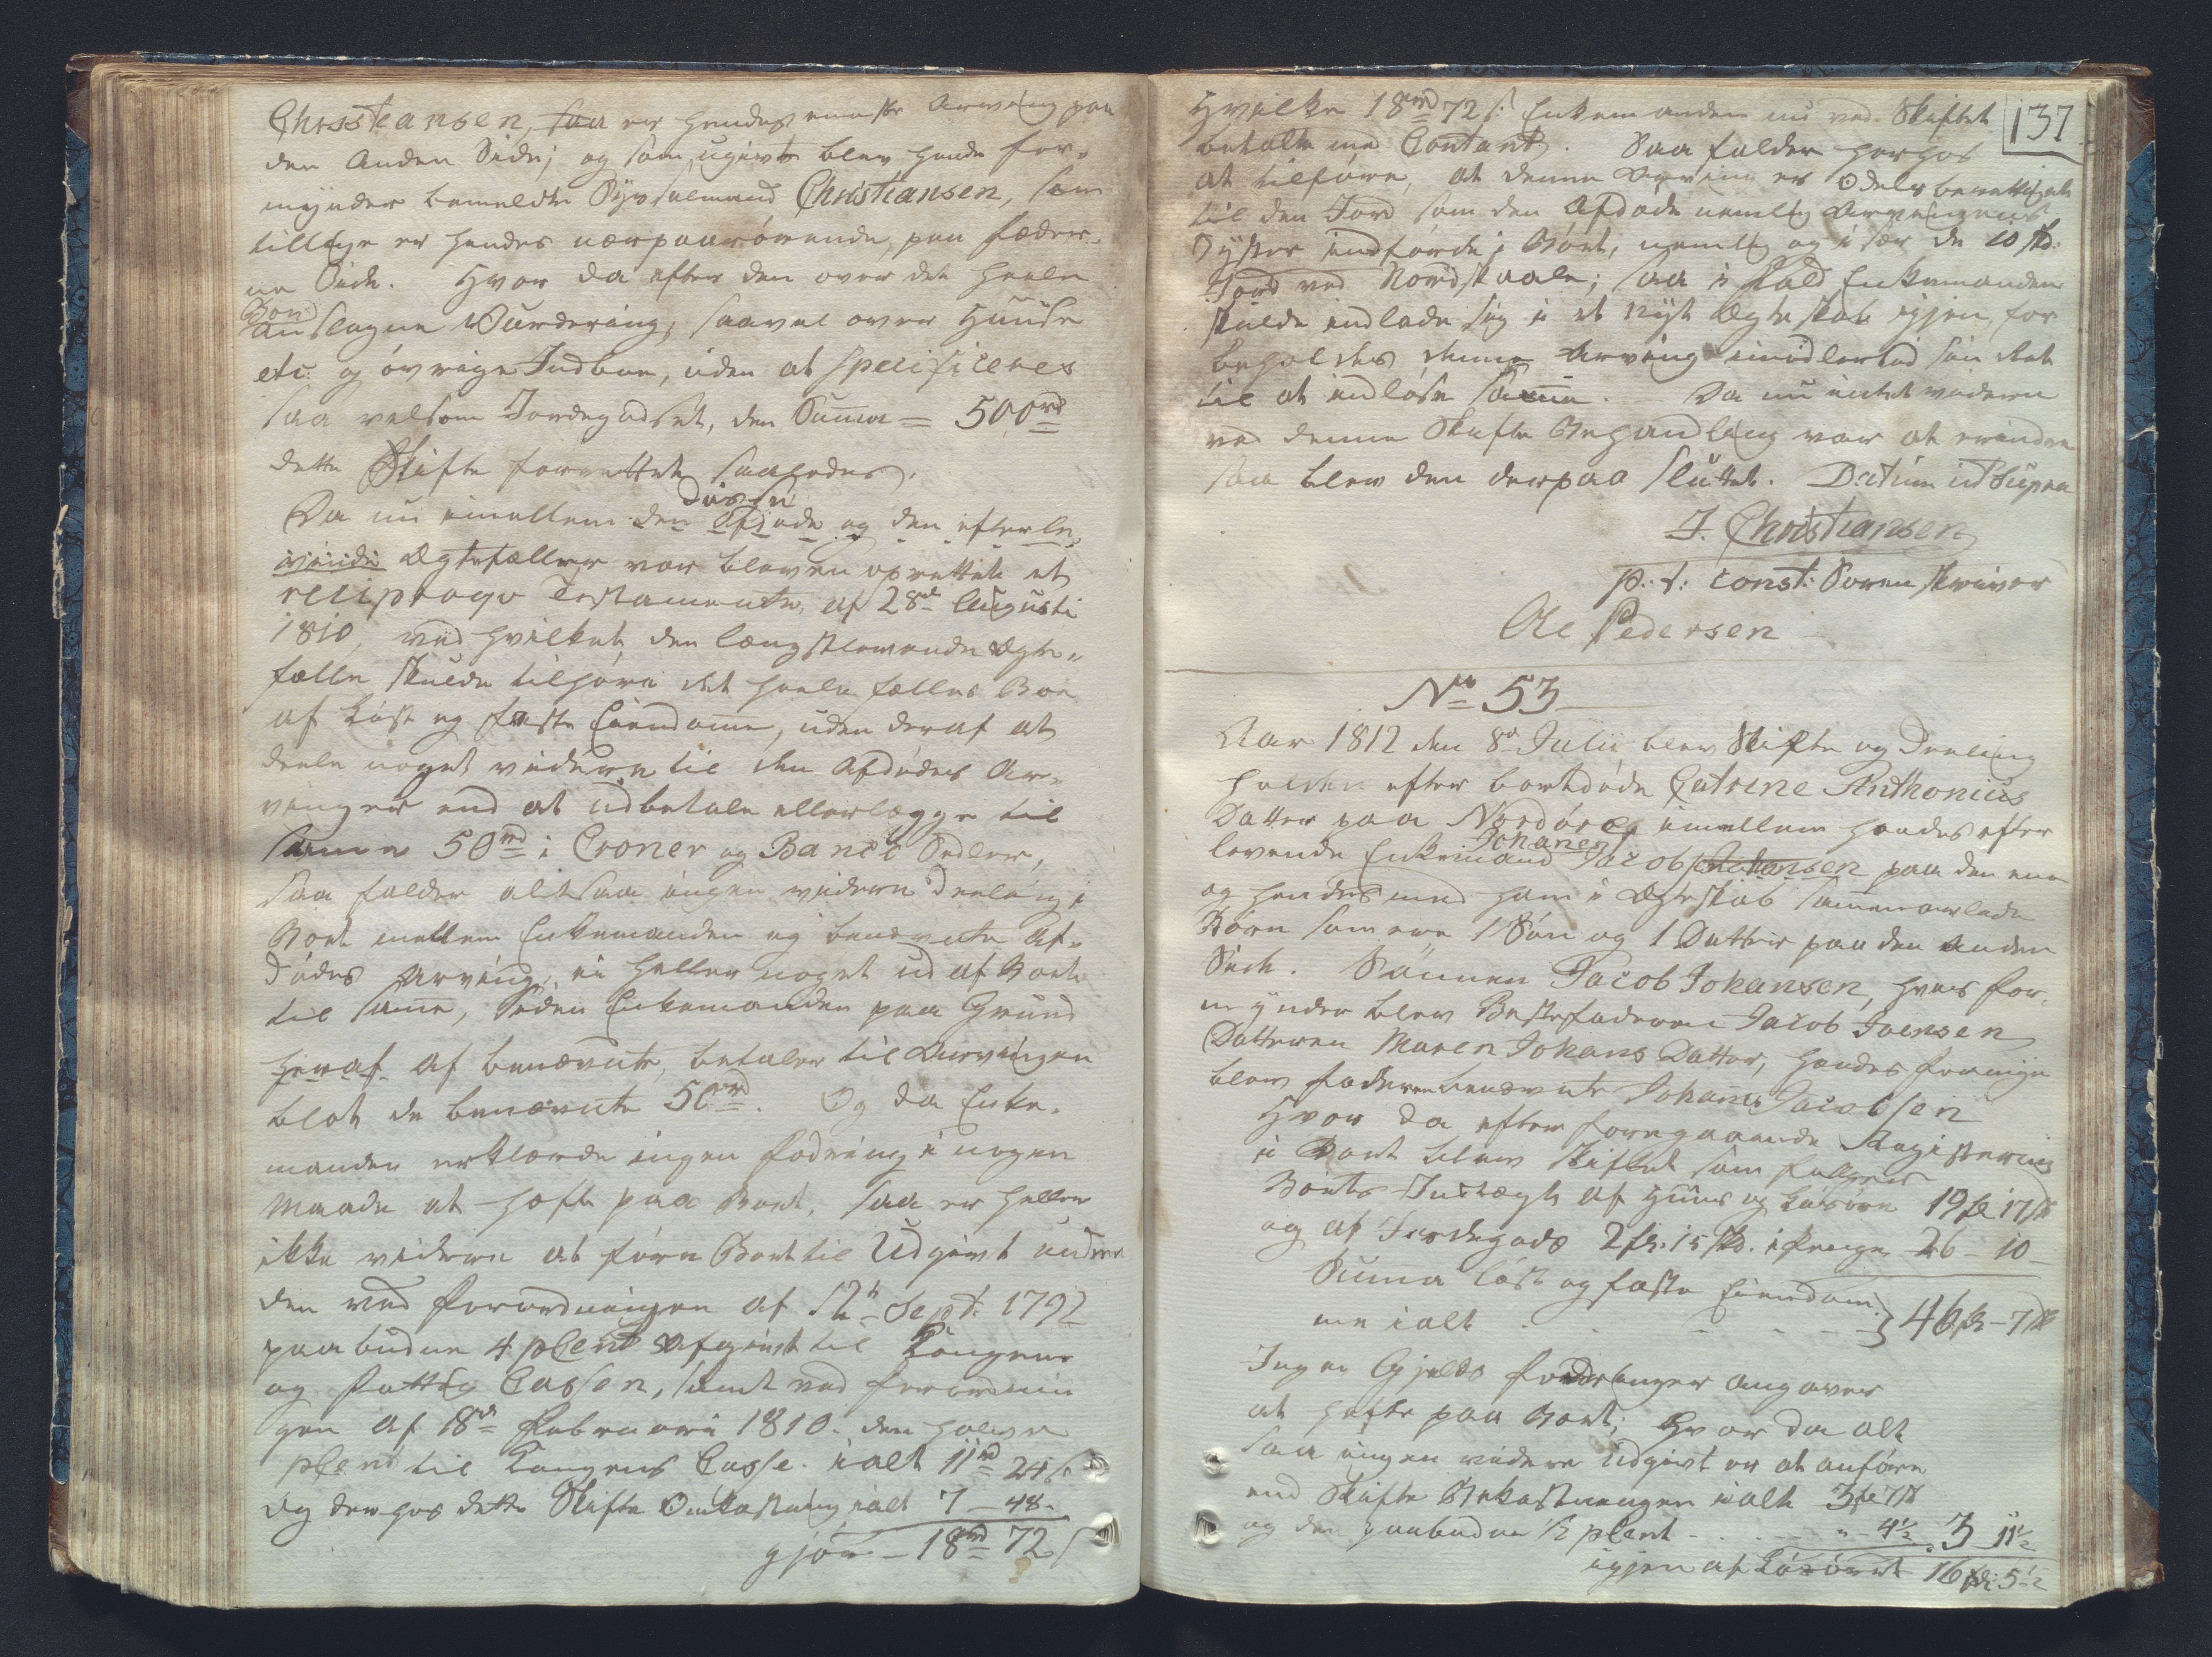 Christiansen, saa er hendes eneste Arving paa
den Anden Side; og som ugivt blev hende for-
mynder bemeldte Sysselmand Christiansen, som
tillige er hendes nærpaarørende, paa fædre-
ne Side. Hvor da efter den over det heele
Boe
anslagne Vurdering, saavel over Huuse
etc: og øvrige Indboe, uden at specificeres
saa velsom Jordegodset, den Suma = 500 rd
dette Skifte forrettet saaledes.
Da nu imellem den Afdøde og den efterle-
vende Ægtefælle var bleven oprettet et
reciproqve Testamente, af 28de Augusti
1810, ved hvilket den længstlevende Ægte-
fælle skulde tilhøre det heele fælles Boe
af Løst og faste Eiendomme, uden deraf at
deele noget videre til den Afdødes Ar-
vinger end at udbetale ellerlægge til
samme 50 rd i Croner og Banco Sedler,
saa falder altsaa ingen videre Deeling i
Boet mellem Enkemanden og benævnte Af-
dødes Arving, ei heller noget ud af Boet
til samme, siden Enkemanden paa Grund
heraf af benævnte, betaler til Arvingen
blot de benævnte 50 rd. Og da Enke-
manden erklærde ingen fodring i nogen
Maade at hæfte paa Boet, saa er heller
ikke videre at føre Boet til Udgivt uden
den ved Forordningen af 12te Sept: 1792
paabudne 4 pCent Afgivt til Kongens
og Fattig Cassen, samt ved forordnin
gen af 8de Februarii 1810. den halve
pCent til Kongens Casse. ialt 11 rd 24 s.
og derhos dette Skifte Omkostning ialt 7 - 48.
gjør - 18 rd 72 s
137
Hvilke 18 rd 72 s: Enkemanden nu ved Skiftet
betalte med Contant. Saa falder herhos
at tilføre, at denne Arving er Odelsberettiget
til den Jord som den Afdøde nemlig Arvingens
Syster indførde i Boet, nemlig og i sær de 10 skd:
Jord ved Nordskaale; saa i fald Enkemanden
skulde indlade sig i et nyt Ægteskab igjen, for
beholdes denne Arving imidlertid sin Ret
til at indløse samme. Da nu intet videre
ved denne Skifte Behandling var at erindre
saa blev den derpaa sluttet. Datum ut Supra
J. Christiansen
p: t: const: Sorenskriver
Ole Pedersen
No 53
Aar 1812 den 8de Julii blev Skifte og Deeling
holden efter bortdøde Catrine Anthonius
Datter paa Nordøre, imellem hendes efter
levende Enkemand Johanes Jacobsen paa den ene
og hendes med ham i Ægteskab sammenavlede
Børn som ere 1 Søn og 1 Datter paa den Anden
Side. Sønnen Jacob Johansen, hves for-
mynder blev Bestefaderen Jacob Joensen
Datteren Maren Johans Datter, hendes formyn
blev faderen benævnte Johannes Jacobsen
Hvor da efter foregaaende Registering
i Boet blev Skiftet som følger
Boets Indtægt af Huus og Løsøre 19 fl 17 sk
og af Jordegods 2 fl. 15 skd. i Penge 26 - 10 -
Suma løst og faste Eiendom-
me ialt - - - - 46 fl - 7 sk
Ingen Gjelds Fordringer angaves
at hæfte paa Boet; Hvor da alt
saa ingen videre Udgivt er at anføre
end Skifte Bekostningen ialt 3 fl 7 sk
og den paabudne ½ pCent - - „ - 4½ 3 11½
igjen af Løsøret 16 fl: 5½